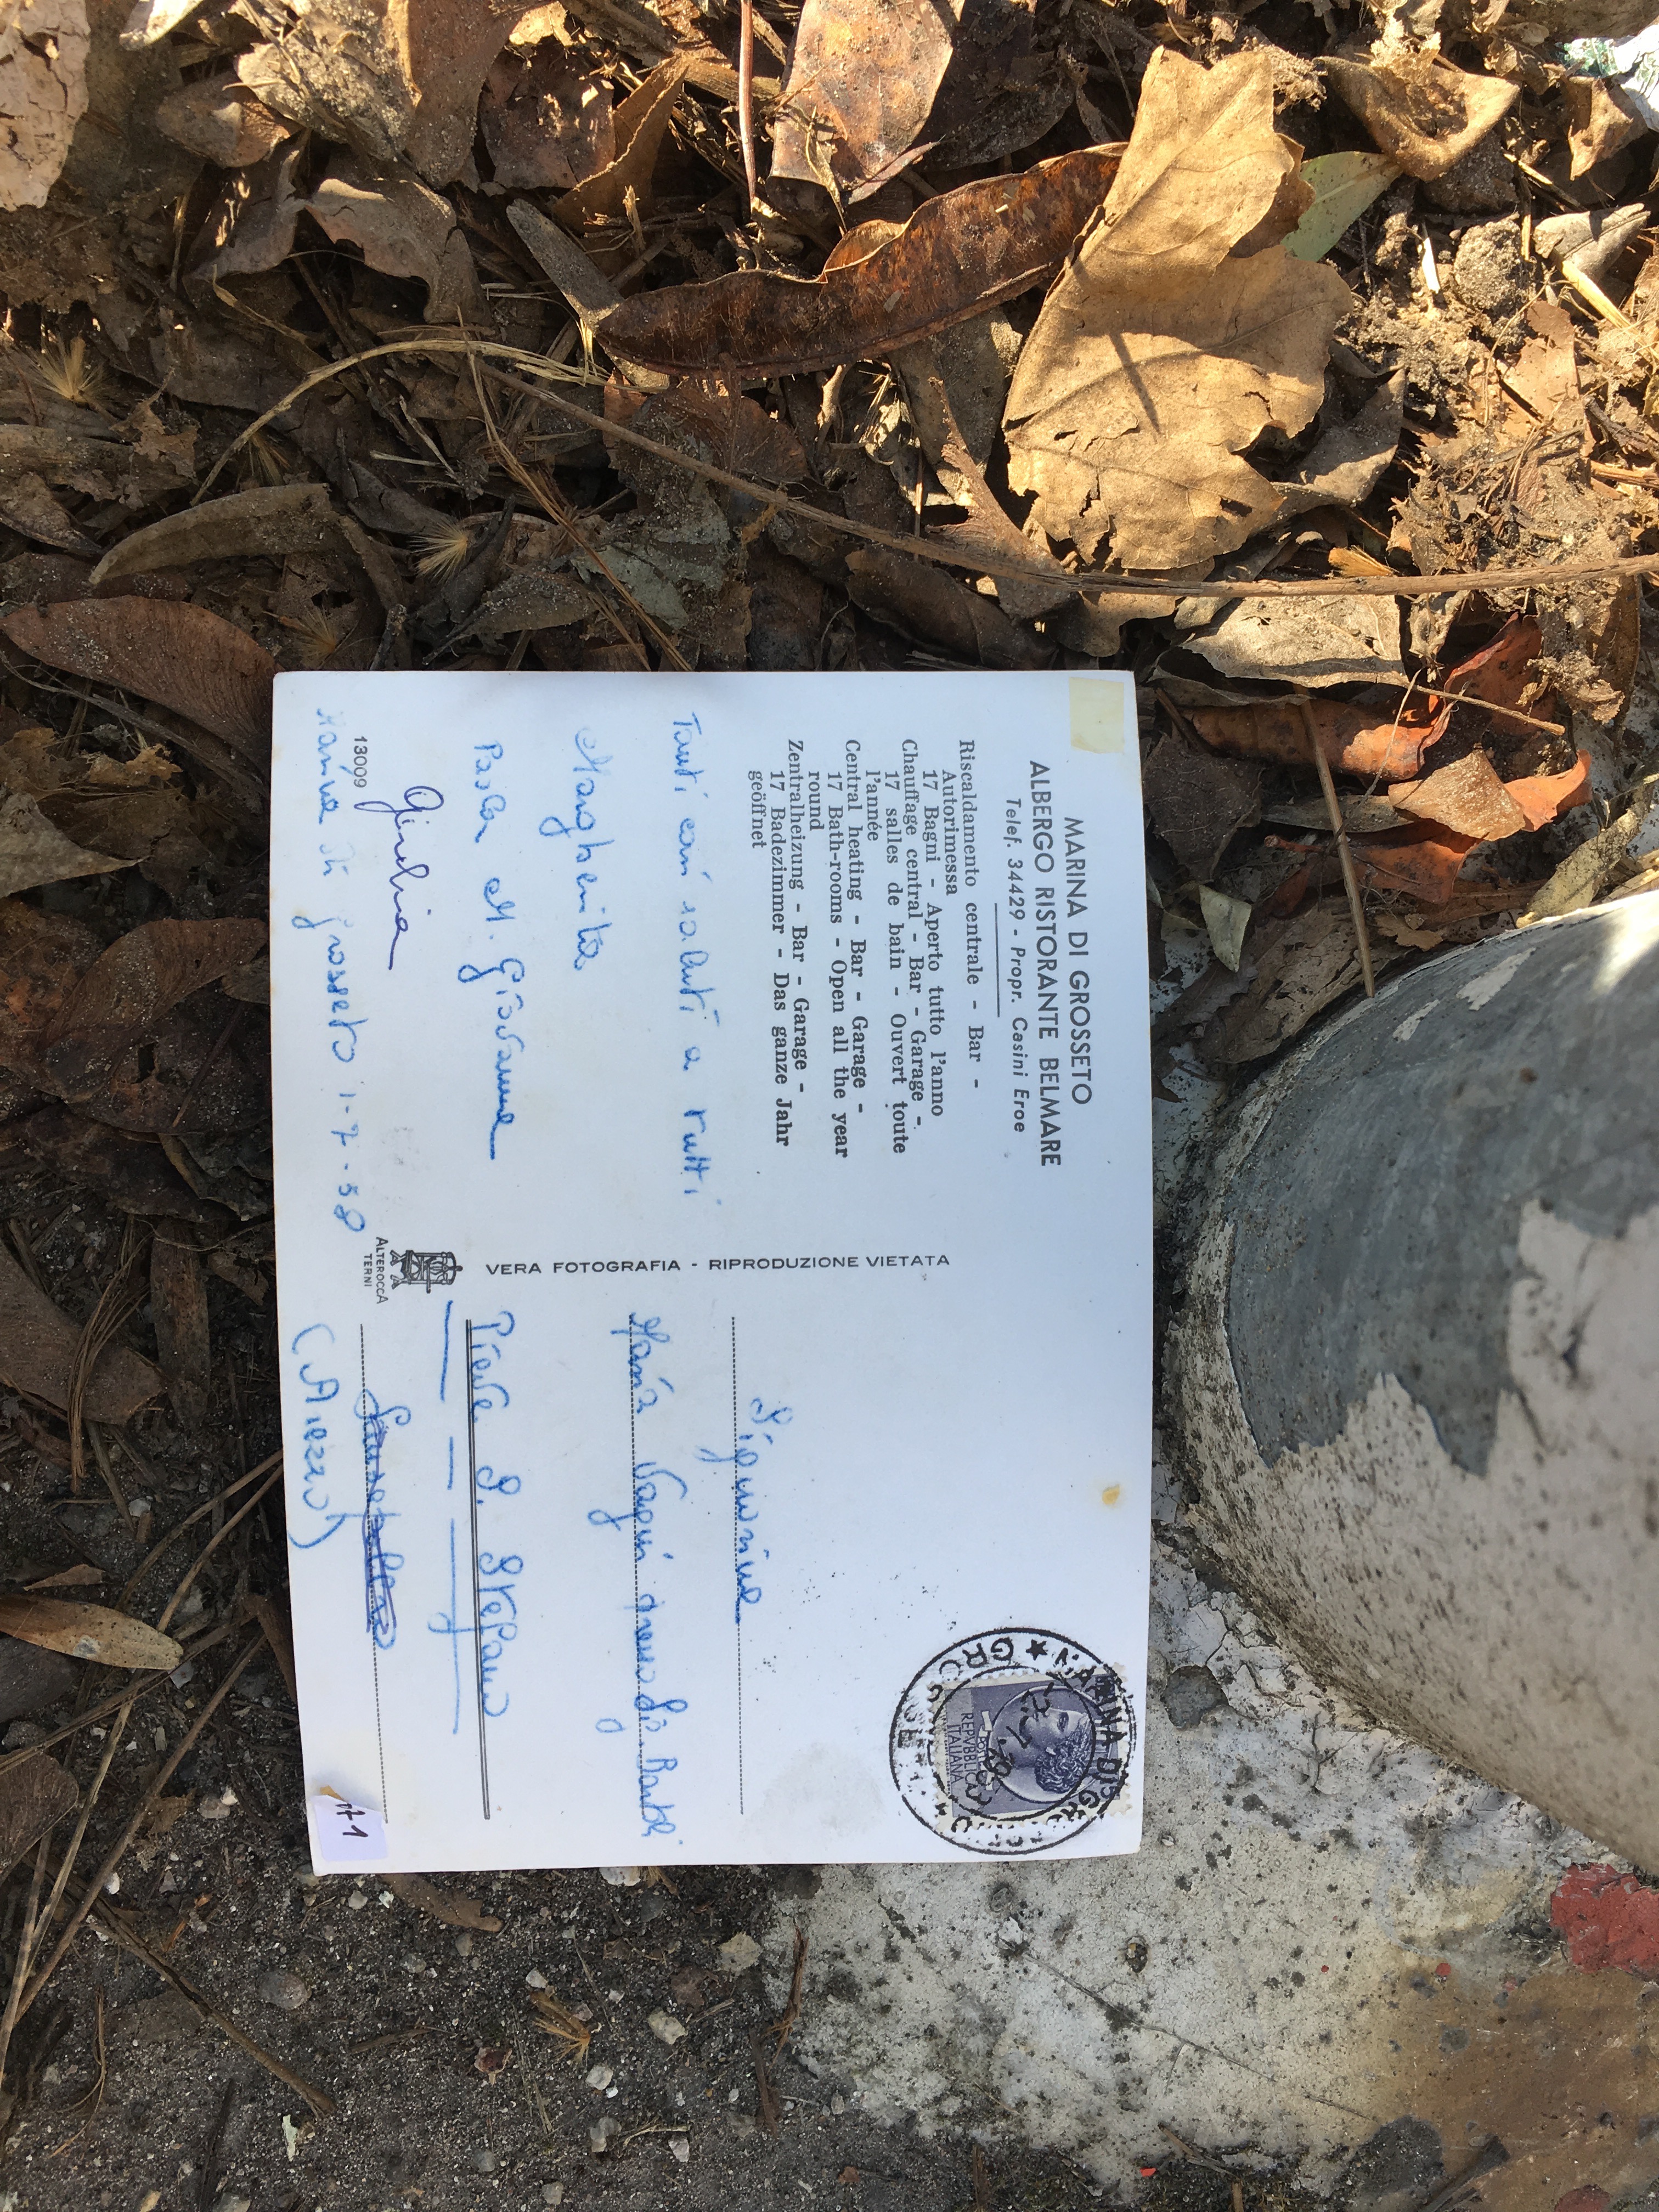 MARINA DI GROSSETO
ALBERGO RISTORANTE BELMARE
Telef. 34429 - Propr. Casini Eroe
Riscaldamento centrale - Bar -
Autorimessa
17 Bagni - Aperto tutto l'anno
Chauffage central - Bar - Garage -
17 salles de bain - Ouvert toute
l'année
Central heating - Bar - Garage -
17 Bath-rooms - Open all the year
round
Zentralheizung - Bar - Garage -
17 Badezimmer - Das ganze Jahr
geöffnet
Tanti cari saluti a tutti
Margherita
Paola M. Giovanna
Giulia
13009
Marina di Grosseto 1-7-58
VERA FOTOGRAFIA - RIPRODUZIONE VIETATA
ALTEROCCA
TERNI
MARINA DI GROSSETO
REPVBBLICA
ITALIANA
Signorina
Maria Vagni presso Sig. Bartoli
Pieve S. Stefano
(Arezzo)